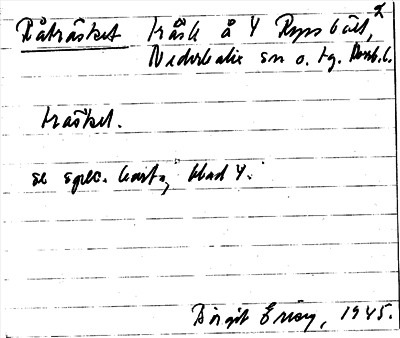 Råträsket träsk å 4 Ryssbält,
Nederkalix sn o. tg. Norrb. l.
träsket.
se spec. karta, blad 4.
Birgit Ericsy, 1945.